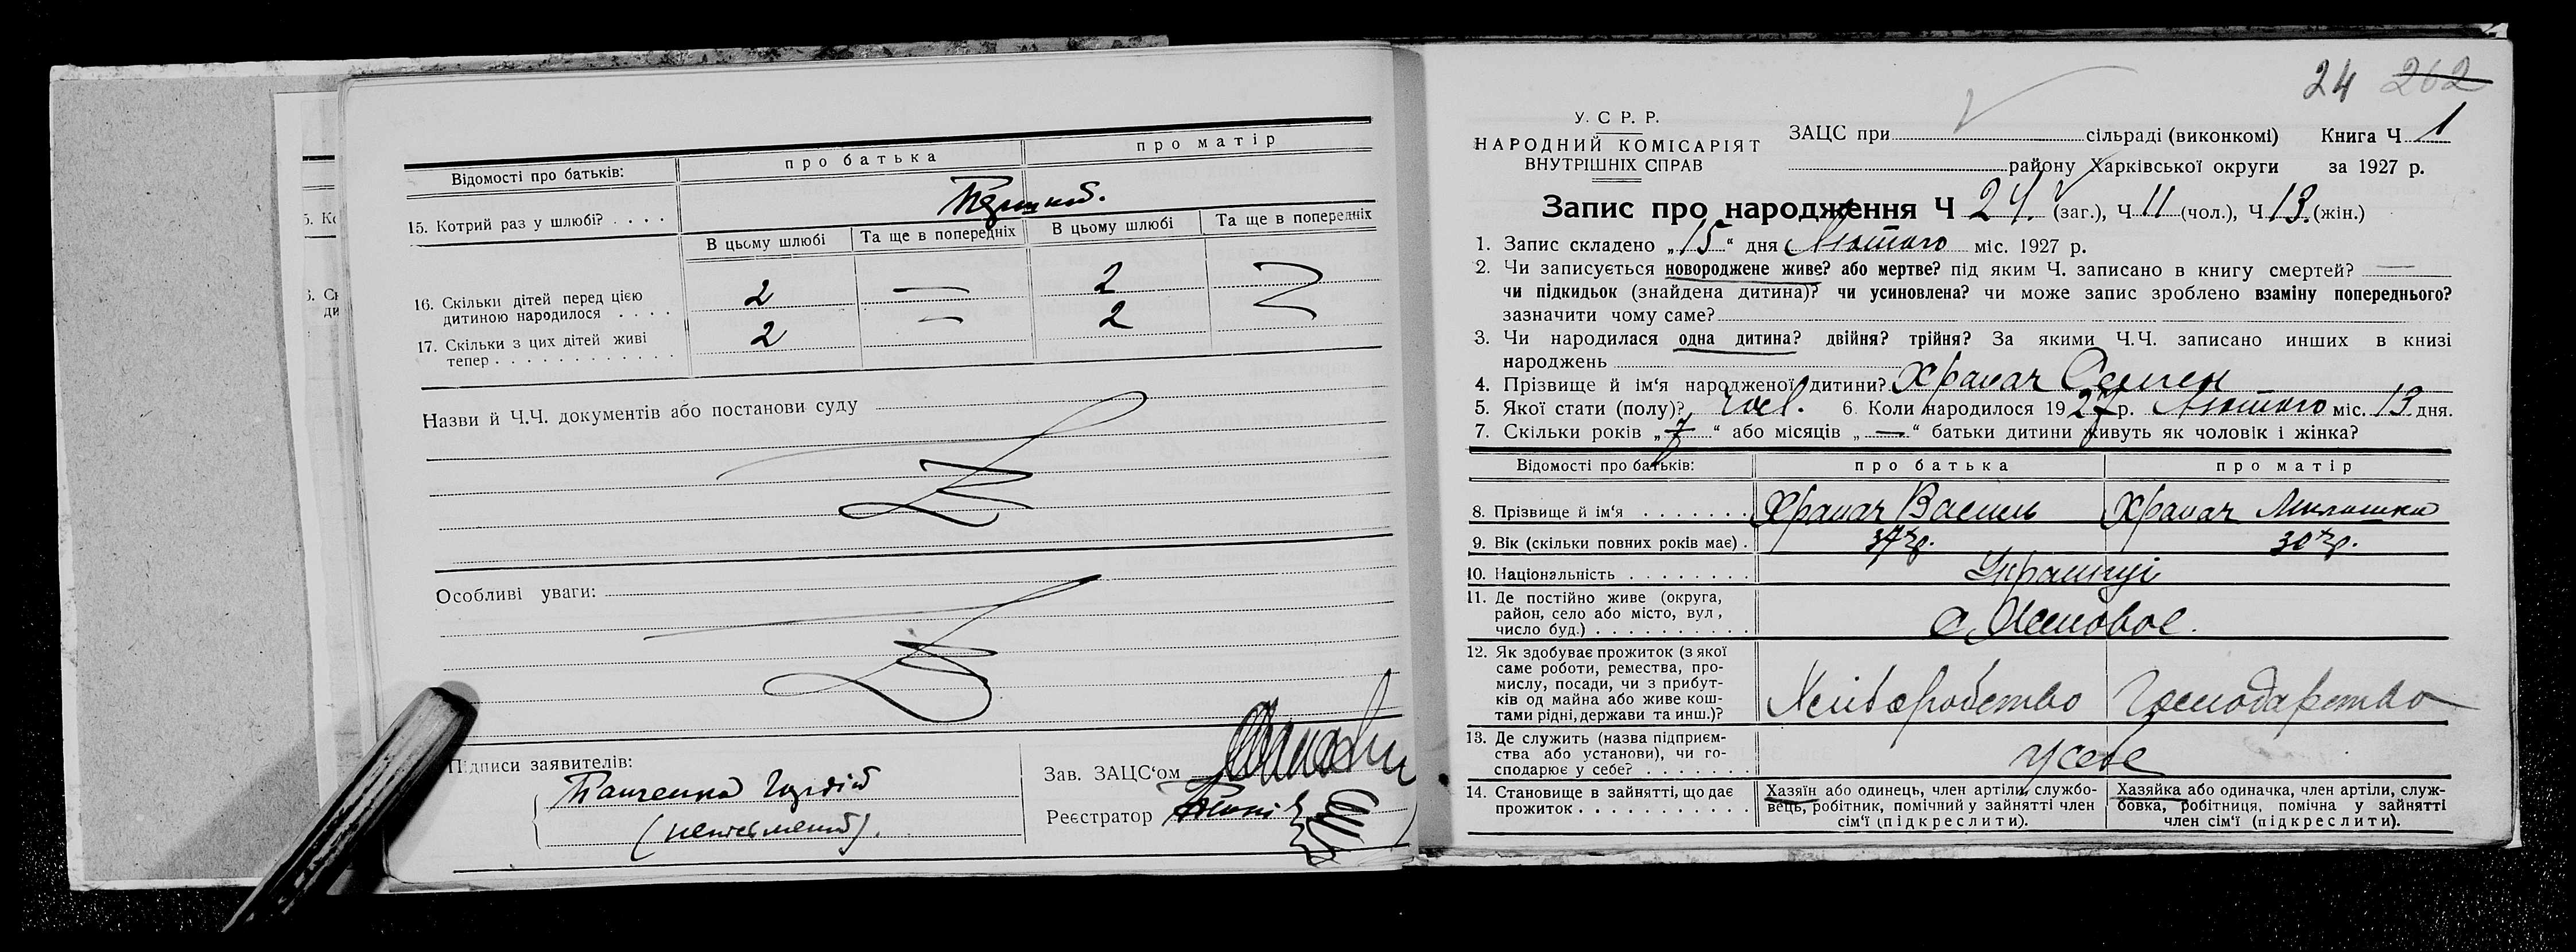 Відомості про батьків:
про батька
про матір
15. Котрий раз у шлюбі? . . . .
Перший.
В цьому шлюбі
Та ще в попередніх
В цьому шлюбі
Та ще в попередніх
16. Скільки дітей перед цією
дитиною народилося . . . .
2 — 2
17. Скільки з цих дітей живі
тепер . . . . . . . . . . . .
2 — 2
Назви й Ч.Ч. документів або постанови суду
Особливі уваги:
Підписи заявителів:
Гордій
Зав. ЗАЦС‘ом
Реєстратор
24 262
У. С Р. Р.
НАРОДНИЙ КОМІСАРІЯТ
ВНУТРІШНІХ СПРАВ
ЗАЦС при сільраді (виконкомі) Книга Ч. 1
району Харківської округи за 1927 р.
Запис про народження Ч 24. (заг.), Ч 11 (чол.), Ч 13. (жін.)
1. Запис складено „15“ дня Лютого міс. 1927 р.
2. Чи записується новороджене живе? або мертве? під яким Ч. записано в книгу смертей? —
чи підкидьок (знайдена дитина)? чи усиновлена? чи може запис зроблено взаміну попереднього?
зазначити чому саме?
3. Чи народилася одна дитина? двійня? трійня? За якими Ч.Ч. записано инших в книзі
народжень
4. Прізвище й ім‘я народженої дитини? Храпач Семен
5. Якої стати (полу)? чол. 6. Коли народилося 1927 р. Лютого міс. 13 дня.
7. Скільки років „7“ або місяців „—“ батьки дитини живуть як чоловік і жінка?
Відомості про батьків:
про батька
про матір
8. Прізвище й ім‘я . . . . . . .
Храпач Василь
Храпач
9. Вік (скільки повних років має) .
37 р.
30 р.
10. Національність . . . . . . . .
Українці
11. Де постійно живе (округа,
район, село або місто, вул,
число буд.) . . . . . . . . . .
12. Як здобуває прожиток (з якої
саме роботи, ремества, про-
мислу, посади, чи з прибут-
ків од майна або живе кош-
тами рідні, держави та инш.)?
Хліборобство
Господарство
13. Де служить (назва підприєм-
ства або установи), чи го-
сподарює у себе? . . . . . . .
У себе
14. Становище в зайнятті, що дає
прожиток . . . . . . . . . . .
Хазяїн або одинець, член артіли, службо-
вець, робітник, помічний у зайнятті член
сім‘ї (підкреслити).
Хазяйка або одиначка, член артіли, служ-
бовка, робітниця, помічна у зайнятті
член сім‘ї (підкреслити).